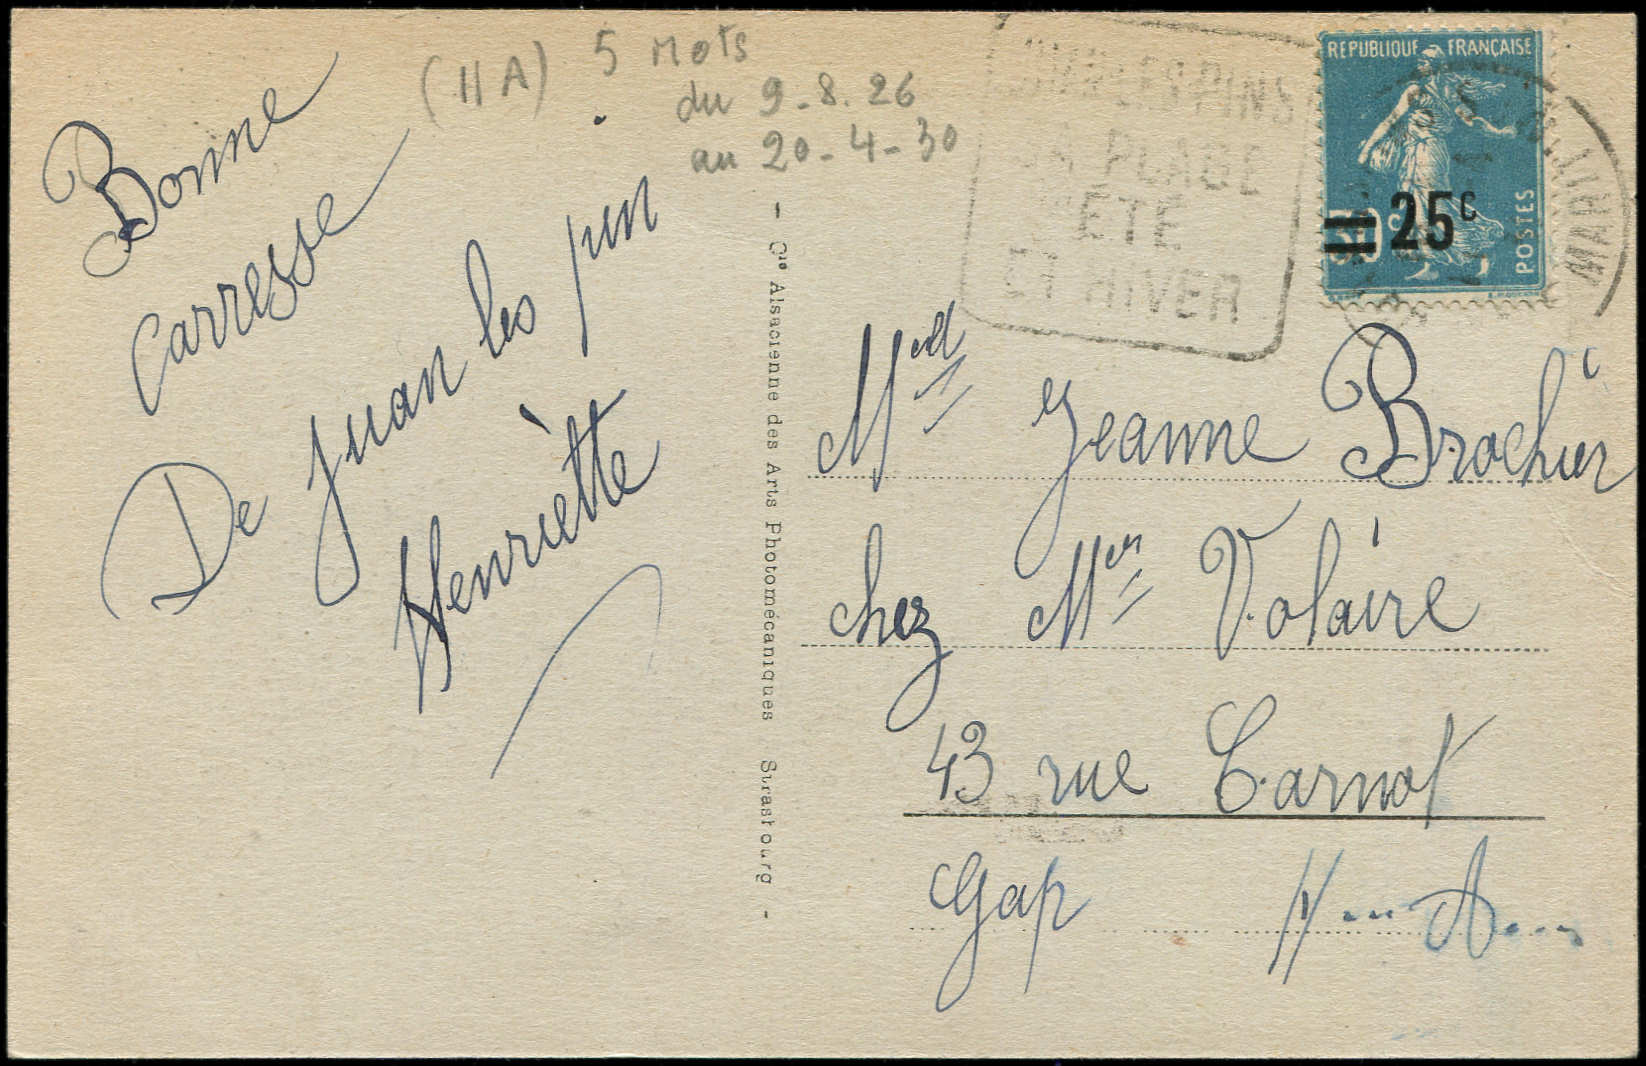 (II A) 5 Mots
du 9.8.26
au 20-4-30
Bonne
Carresse
De Juan les pin
Henriètte
- Cie Alsacienne des Arts Photomécaniques Strasbourg -
LA PLAGE
ÉTÉ
ET HIVER
REPUBLIQUE FRANÇAISE
25c
POSTES
MARITIM
Melle Jeanne Brochier
chez Mer Volaire
43 rue Carnot
Gap Htes A